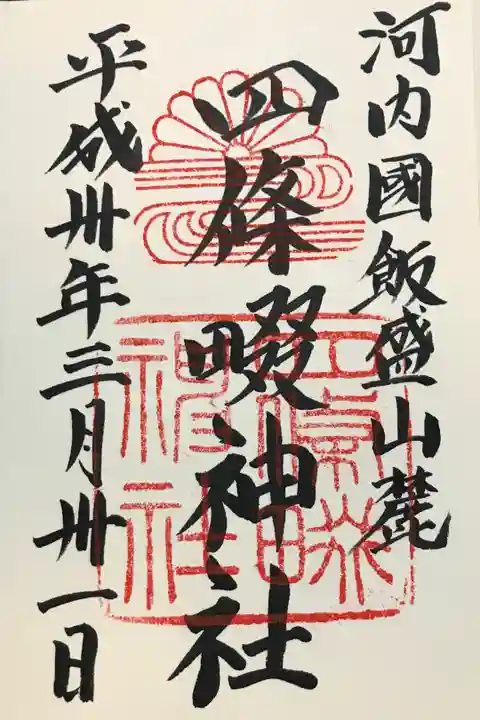 河内國飯盛山麓
四條畷神社
平成卅年三月卅一日
四條畷
神社